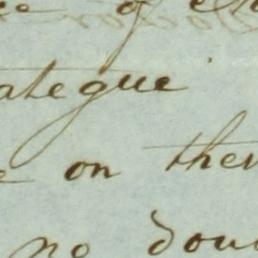 of
ategue
e on them
no dou